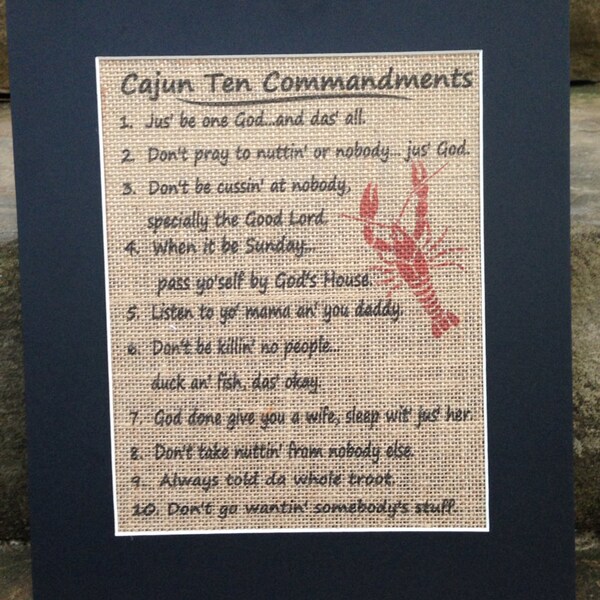 Cajun Ten Commandments
1. Jus' be one God...and das' all.
2. Don't pray to nuttin' or nobody... jus' God.
3. Don't be cussin' at nobody,
specially the Good Lord.
4. When it be Sunday...
pass yo'self by God's House.
5. Listen to yo' mama an' you daddy.
6. Don't be killin' no people...
duck an' fish, das' okay.
7. God done give you a wife, sleep wit' jus' her.
8. Don't take nuttin' from nobody else.
9. Always told da whole troot.
10. Don't go wantin' somebody's stuff.